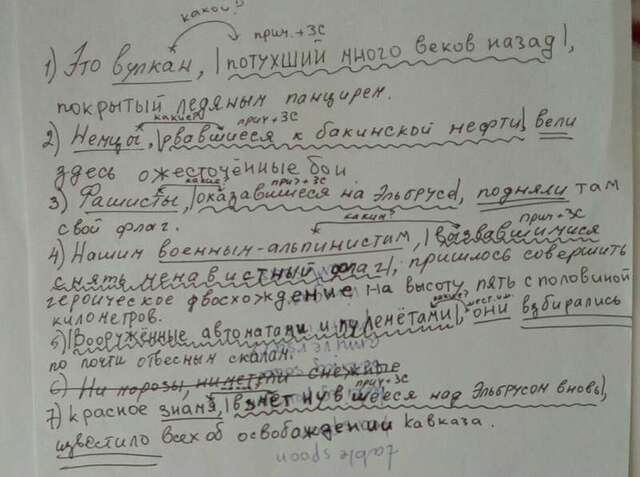 какой?
прич.+ЗС
1) Это вулкан, |потухший много веков назад|,
покрытый ледяным панцирем.
какие? прич+ЗС
2) Немцы, |рвавшиеся к бакинской нефти| вели
здесь ожесточённые бои
какие? прич+ЗС
3) Фашисты, |оказавшиеся на Эльбрусе|, подняли там
свой флаг.
каким? прич+ЗС
4) Нашим военным-альпинистам, |вызвавшимися
снять ненавистный флаг|, пришлось совершить
героическое восхождение на высоту, пять с половиной
километров.
какие? мест.им.
5) |Вооружённые автоматами и пулемётами|, они взбирались
по почти отвесным скалам.
6) Ни морозы, ни метели снежные
прич+ЗС
7) красное знамя, |взметнувшееся над Эльбрусом вновь|,
известило всех об освобождении Кавказа.
table spoon